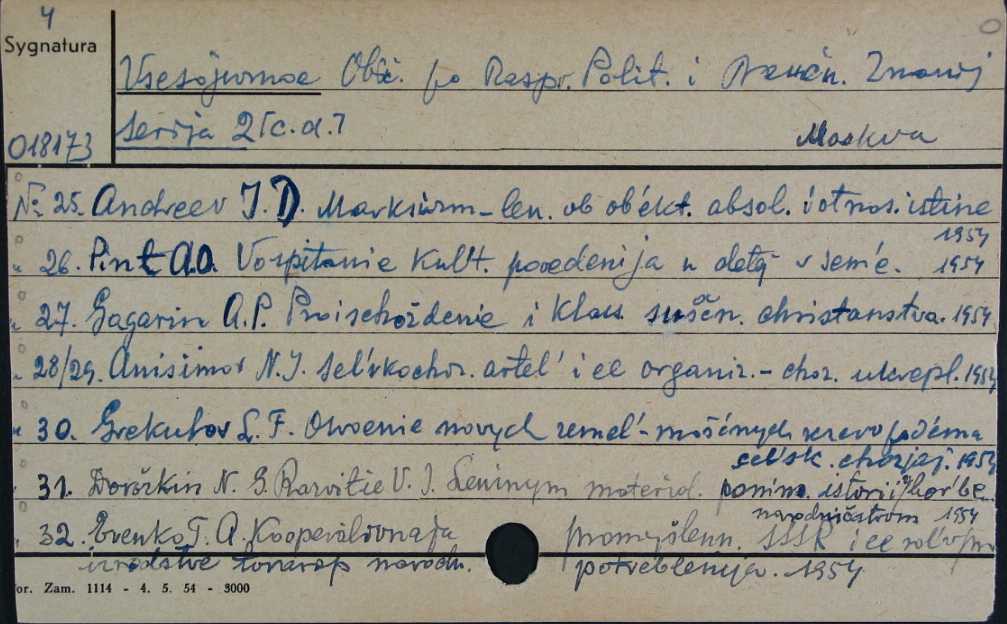 4
Sygnatura
Vsesojuznoe Obšč. po Raspr. Polit. i Naučn. Znanij
serija 2 [c.d.]
Moskva
018173
№ 25. Andreev I. D. Marksizm-len. ob obékt. absol. i otnos. istine
1954
" 26. Pint A.O. Vospitanie kult. povedenija u detej v sem'e. 1954
" 27. Gagarin A.P. Proischoždenie i klass. suščn. christianstva. 1954
" 28/29. Anisimov N.I. sel'skochoz. artel' i ee organiz.-choz. ukrepl. 1954
" 30. F. Osvoenie novych zemel'- pod'ema
sel'sk. chozjaj. 1954
" 31. N. G. Razvitie V. I. Leninym material. ponim. istorii v bor'be
narodničestvom 1954
" 32. Evenko I. A. Kooperativnaja promyšlenn. SSSR i ee rol' v pro
izvodstve tovarov narodn. potreblenija. 1954
or. Zam. 1114 - 4. 5. 54 - 3000